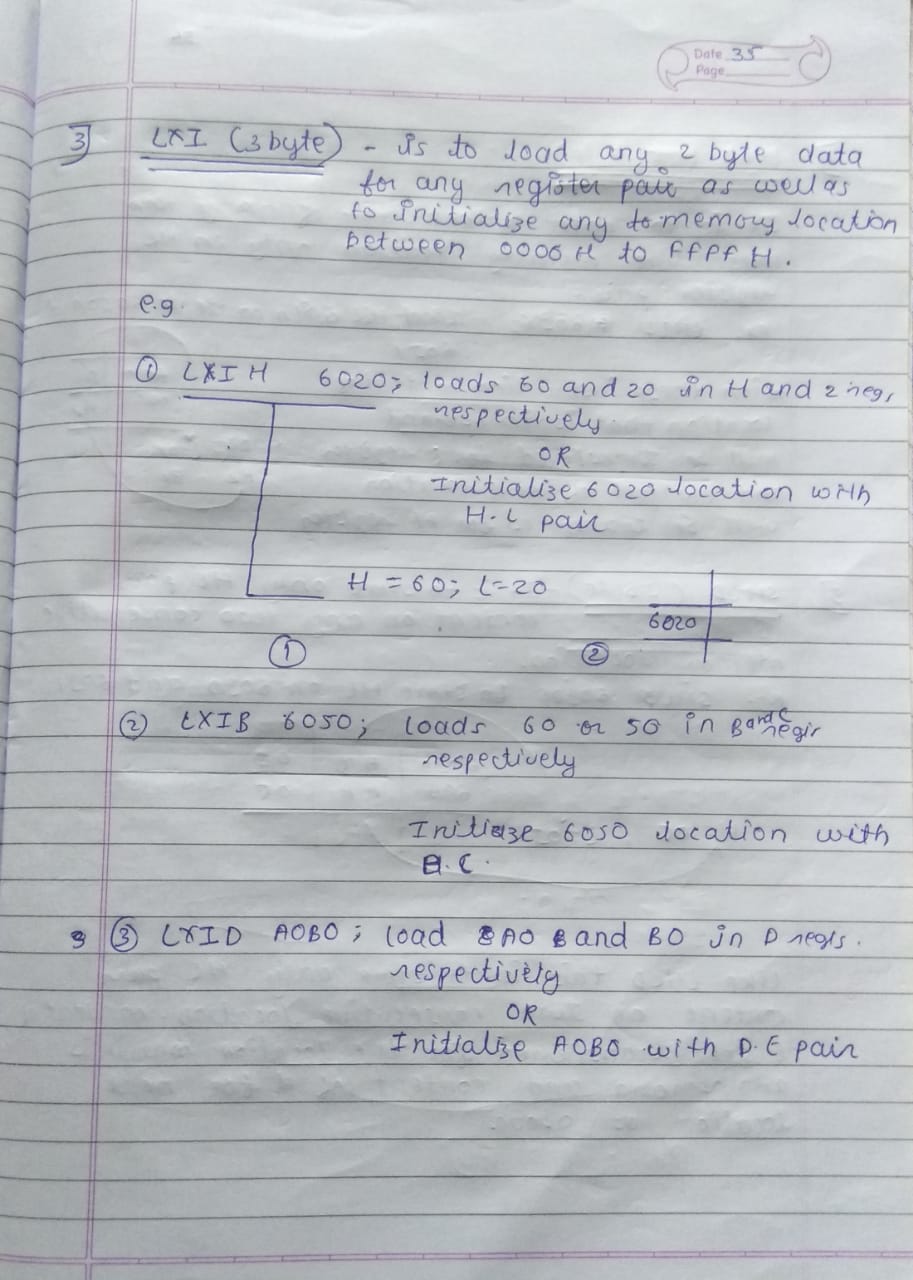 Date 35
Page
3] LXI (3 byte) - is to load any 2 byte data
for any register pair as well as
to initialize any to memory location
between 0000 H to FFFF H.
e.g.
① LXI H 6020; loads 60 and 20 in H and 2 reg,
respectively
OR
Initialize 6020 location with
H-L pair
H = 60; L=20
6020
① ②
② LXIB 6050; loads 60 or 50 in B and C regir
respectively
Initiaze 6050 location with
B.C.
③ LXID A0B0; load A0 and B0 in D regs.
respectively
OR
Initialize A0B0 with D.E pair